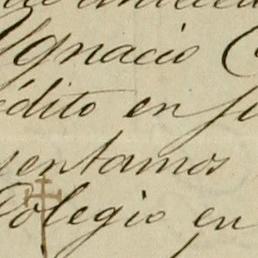 Ygnacio C
édito en fu
sentamos
Colegio en